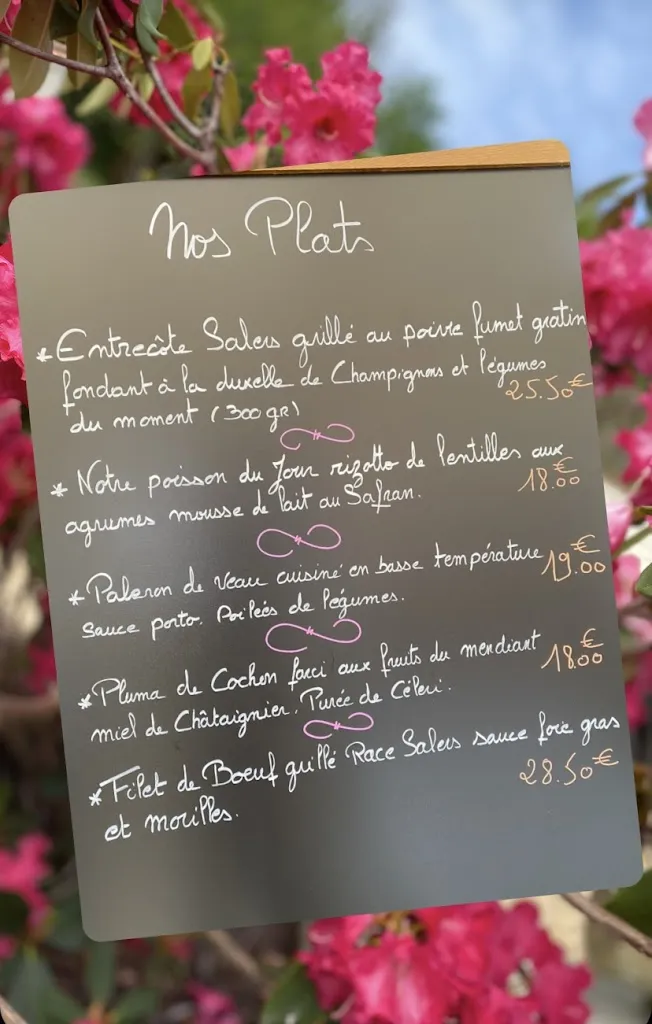 Nos Plats
*Entrecôte Salers grillé au poivre fumet gratin
fondant à la duxelle de Champignons et légumes
25.50€
du moment (300 gr)
* Notre poisson du Jour rizotto de lentilles aux
18.00€
agrumes mousse de lait au Safran.
*Paleron de Veau cuisiné en basse température
19.00€
sauce porto. Poilées de légumes.
*Pluma de Cochon farci aux fruits du mendiant
18.00€
miel de Châtaignier. Purée de Céleri.
*Filet de Boeuf grillé Race Salers sauce foie gras
28.50€
et morilles.